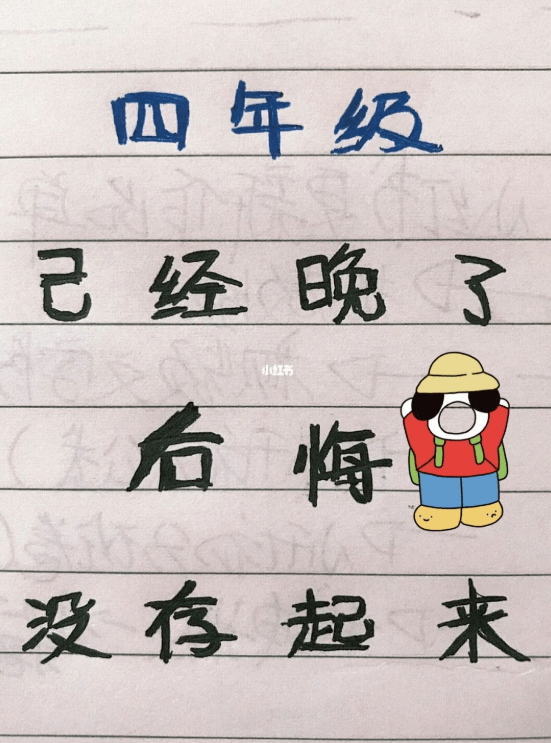 四年级
已经晚了
小红书
后悔
没存起来